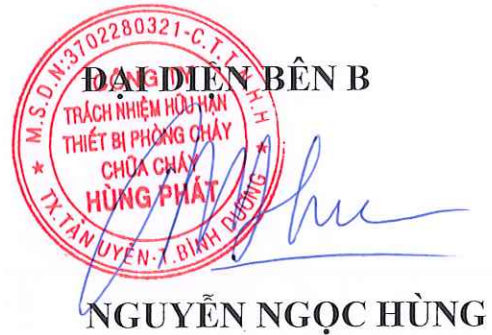 ĐẠI DIỆN BÊN B
M.S.D.N:3702280321-C.T.T.N.H.H
CÔNG TY
TRÁCH NHIỆM HỮU HẠN
THIẾT BỊ PHÒNG CHÁY
CHỮA CHÁY
HÙNG PHÁT
TX.TÂN UYÊN-T.BÌNH DƯƠNG
NGUYỄN NGỌC HÙNG